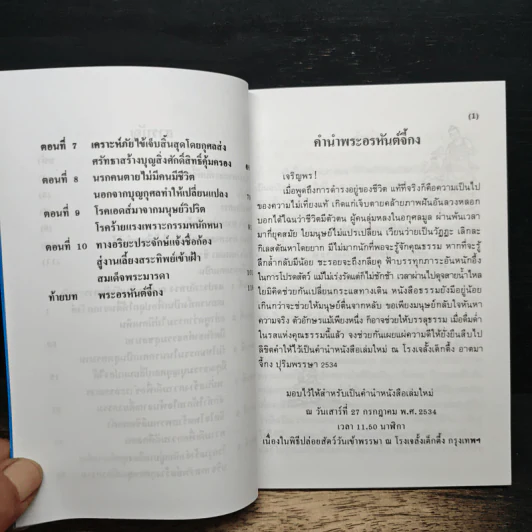 ตอนที่ 7 เคราะห์ภัยไข้เจ็บสิ้นสุดโดยกุศลส่ง
ศรัทธาสร้างบุญสิ่งศักดิ์สิทธิ์คุ้มครอง
ตอนที่ 8 นรกคนตายไม่มีคนมีชีวิต
นอกจากบุญกุศลทำให้เปลี่ยนแปลง
ตอนที่ 9 โรคเอดส์มาจากมนุษย์วิปริต
โรคร้ายแรงเพราะกรรมหนักหนา
ตอนที่ 10 ทางอริยะประจักษ์แจ้งชื่อก้อง
สู่งานเลี้ยงสระทิพย์เข้าเฝ้า
สมเด็จพระมารดา
ท้ายบท พระอรหันต์จี้กง
(1)
คำนำพระอรหันต์จี้กง
เจริญพร!
เมื่อพูดถึงการดำรงอยู่ของชีวิต แท้ที่จริงก็คือความเป็นไป
ของความไม่เที่ยงแท้ เกิดแก่เจ็บตายคล้ายภาพฝันอันลวงหลอก
บอกได้ไฉนว่าชีวิตมีตัวตน ผู้คนลุ่มหลงในอกุศลมูล ผ่านพันเวลา
มาก็ยุคสมัย ใยมนุษย์ไม่แปรเปลี่ยน เวียนว่ายเป็นวัฏฏะ เลิกละ
กิเลสตัณหาโดยยาก มีไม่มากนักที่พอจะรู้จักคุณธรรม หากที่จะรู้
ลึกล้ำกลับมีน้อย ชะรอยจะถึงกลียุค ฟ้าบรรทุกภาระอันหนักอึ้ง
ในการโปรดสัตว์ แม้ไม่เร่งรัดแต่ก็ไม่ชักช้า เวลาผ่านไปดุจสายน้ำไหล
ใยมิคิดช่วยกันเปลี่ยนกระแสทางเดิน หนังสือธรรมยังมีอยู่น้อย
เกินกว่าจะช่วยให้มนุษย์ตื่นจากหลับ ขอเพียงมนุษย์กลับใจหันหา
ความจริง ตัวอักษรแม้เพียงหนึ่ง ก็อาจช่วยให้บรรลุธรรม เมื่อดื่มด่ำ
ในรสแห่งคุณธรรมนี้แล้ว จงช่วยกันเผยแผ่ความดีให้ยั่งยืนสืบไป
ลิขิตคำให้ไว้เป็นคำนำหนังสือเล่มใหม่ ณ โรงเจลั้งเต็กตึ้ง อาตมา
จี้กง ปุริมพรรษา 2534
มอบไว้ให้สำหรับเป็นคำนำหนังสือเล่มใหม่
ณ วันเสาร์ที่ 27 กรกฎาคม พ.ศ. 2534
เวลา 11.50 นาฬิกา
เนื่องในพิธีปล่อยสัตว์วันเข้าพรรษา ณ โรงเจลั้งเต็กตึ้ง กรุงเทพฯ